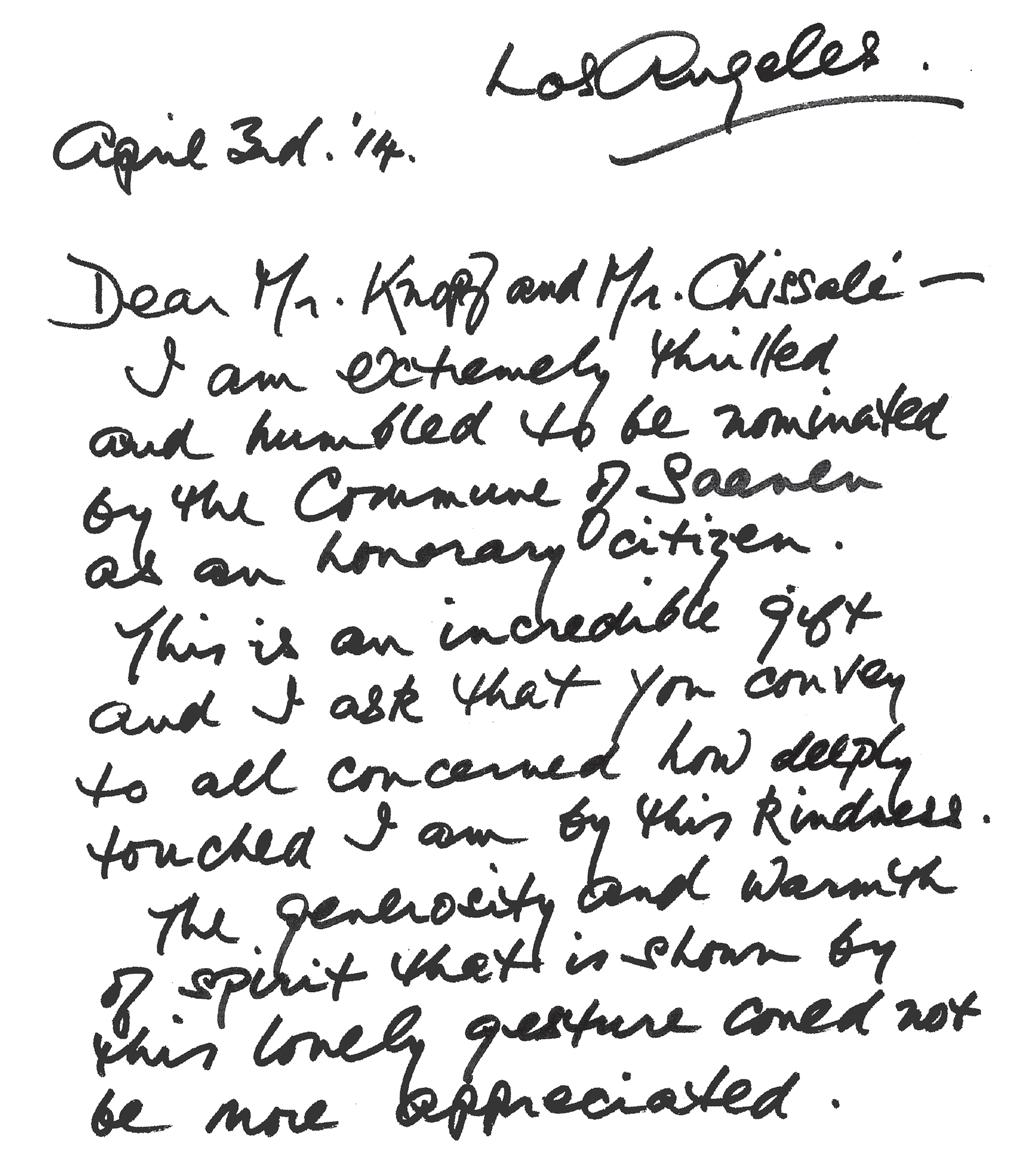 Los Angeles.
April 3rd. '14.
Dear Mr. Knopf and Mr. Chissalé —
I am extremely thrilled
and humbled to be nominated
by the Commune of Saanen
as an honorary citizen.
This is an incredible gift
and I ask that you convey
to all concerned how deeply
touched I am by this kindness.
The generosity and warmth
of spirit that is shown by
this lovely gesture could not
be more appreciated.